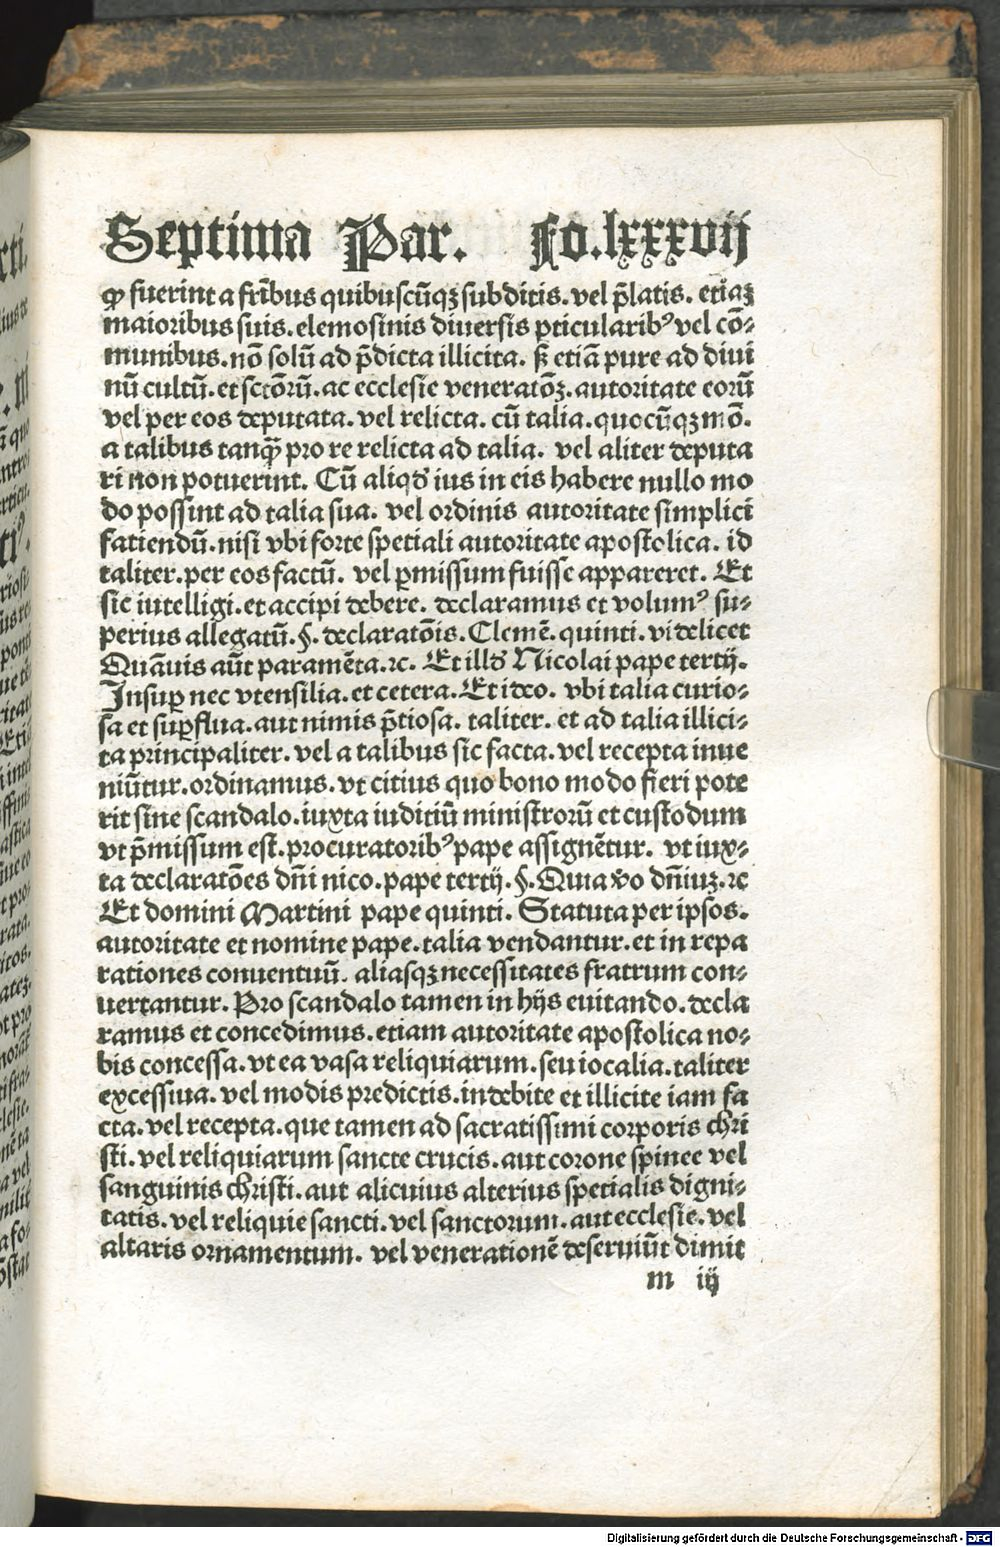 Septima Par. Fo.lxxxvij
ꝙ fuerint a fr̄ibus quibuscūqꝫ subditis. vel p̄latis. etiaꝫ
maioribus suis. elemosinis diuersis ꝑticularibꝰ vel cō⸗
munibus. nō solū ad p̄dicta illicita. ß etiā pure ad diui
nū cultū. et sctōrū. ac ecclesie veneratōꝫ. autoritate eorū
vel per eos deputata. vel relicta. cū talia. quocūqꝫ mō.
a talibus tanꝙ̄ pro re relicta ad talia. vel aliter deputa
ri non potuerint. Cū aliqd̓ ius in eis habere nullo mo
do possint ad talia sua. vel ordinis autoritate simplici
fatiendū. nisi vbi forte spetiali autoritate apostolica. id
taliter. per eos factū. vel ꝑmissum fuisse appareret. Et
sic iutelligi. et accipi debere. declaramus et volumꝰ su⸗
perius allegatū. §. declaratōis. Clemē. quinti. videlicet
Quāuis aūt paramēta. ⁊c. Et illd̓ Nicolai pape tertij.
Insuꝑ nec vtensilia. et cetera. Et ideo. vbi talia curio⸗
sa et suꝑflua. aut nimis p̄tiosa. taliter. et ad talia illici⸗
ta principaliter. vel a talibus sic facta. vel recepta inue
niūtur. ordinamus. vt citius quo bono modo fieri pote
rit sine scandalo. iuxta iuditiū ministrorū et custodum
vt p̄missum est. procuratoribꝰ pape assignētur. vt iux⸗
ta declaratōes dn̄i nico. pape tertij. §. Quia v̓o dn̄iuꝫ. ⁊c
Et domini Martini pape quinti. Statuta per ipsos.
autoritate et nomine pape. talia vendantur. et in repa
rationes conuentuū. aliasqꝫ necessitates fratrum con⸗
uertantur. Pro scandalo tamen in hijs euitando. decla
ramus et concedimus. etiam autoritate apostolica no⸗
bis concessa. vt ea vasa reliquiarum. seu iocalia. taliter
excessiua. vel modis predictis. indebite et illicite iam fa
cta. vel recepta. que tamen ad sacratissimi corporis chri
sti. vel reliquiarum sancte crucis. aut corone spinee vel
sanguinis christi. aut alicuius alterius spetialis digni⸗
tatis. vel reliquie sancti. vel sanctorum. aut ecclesie. vel
altaris ornamentum. vel venerationē deseruiūt dimit
m iij
Digitalisierung gefördert durch die Deutsche Forschungsgemeinschaft - DFG